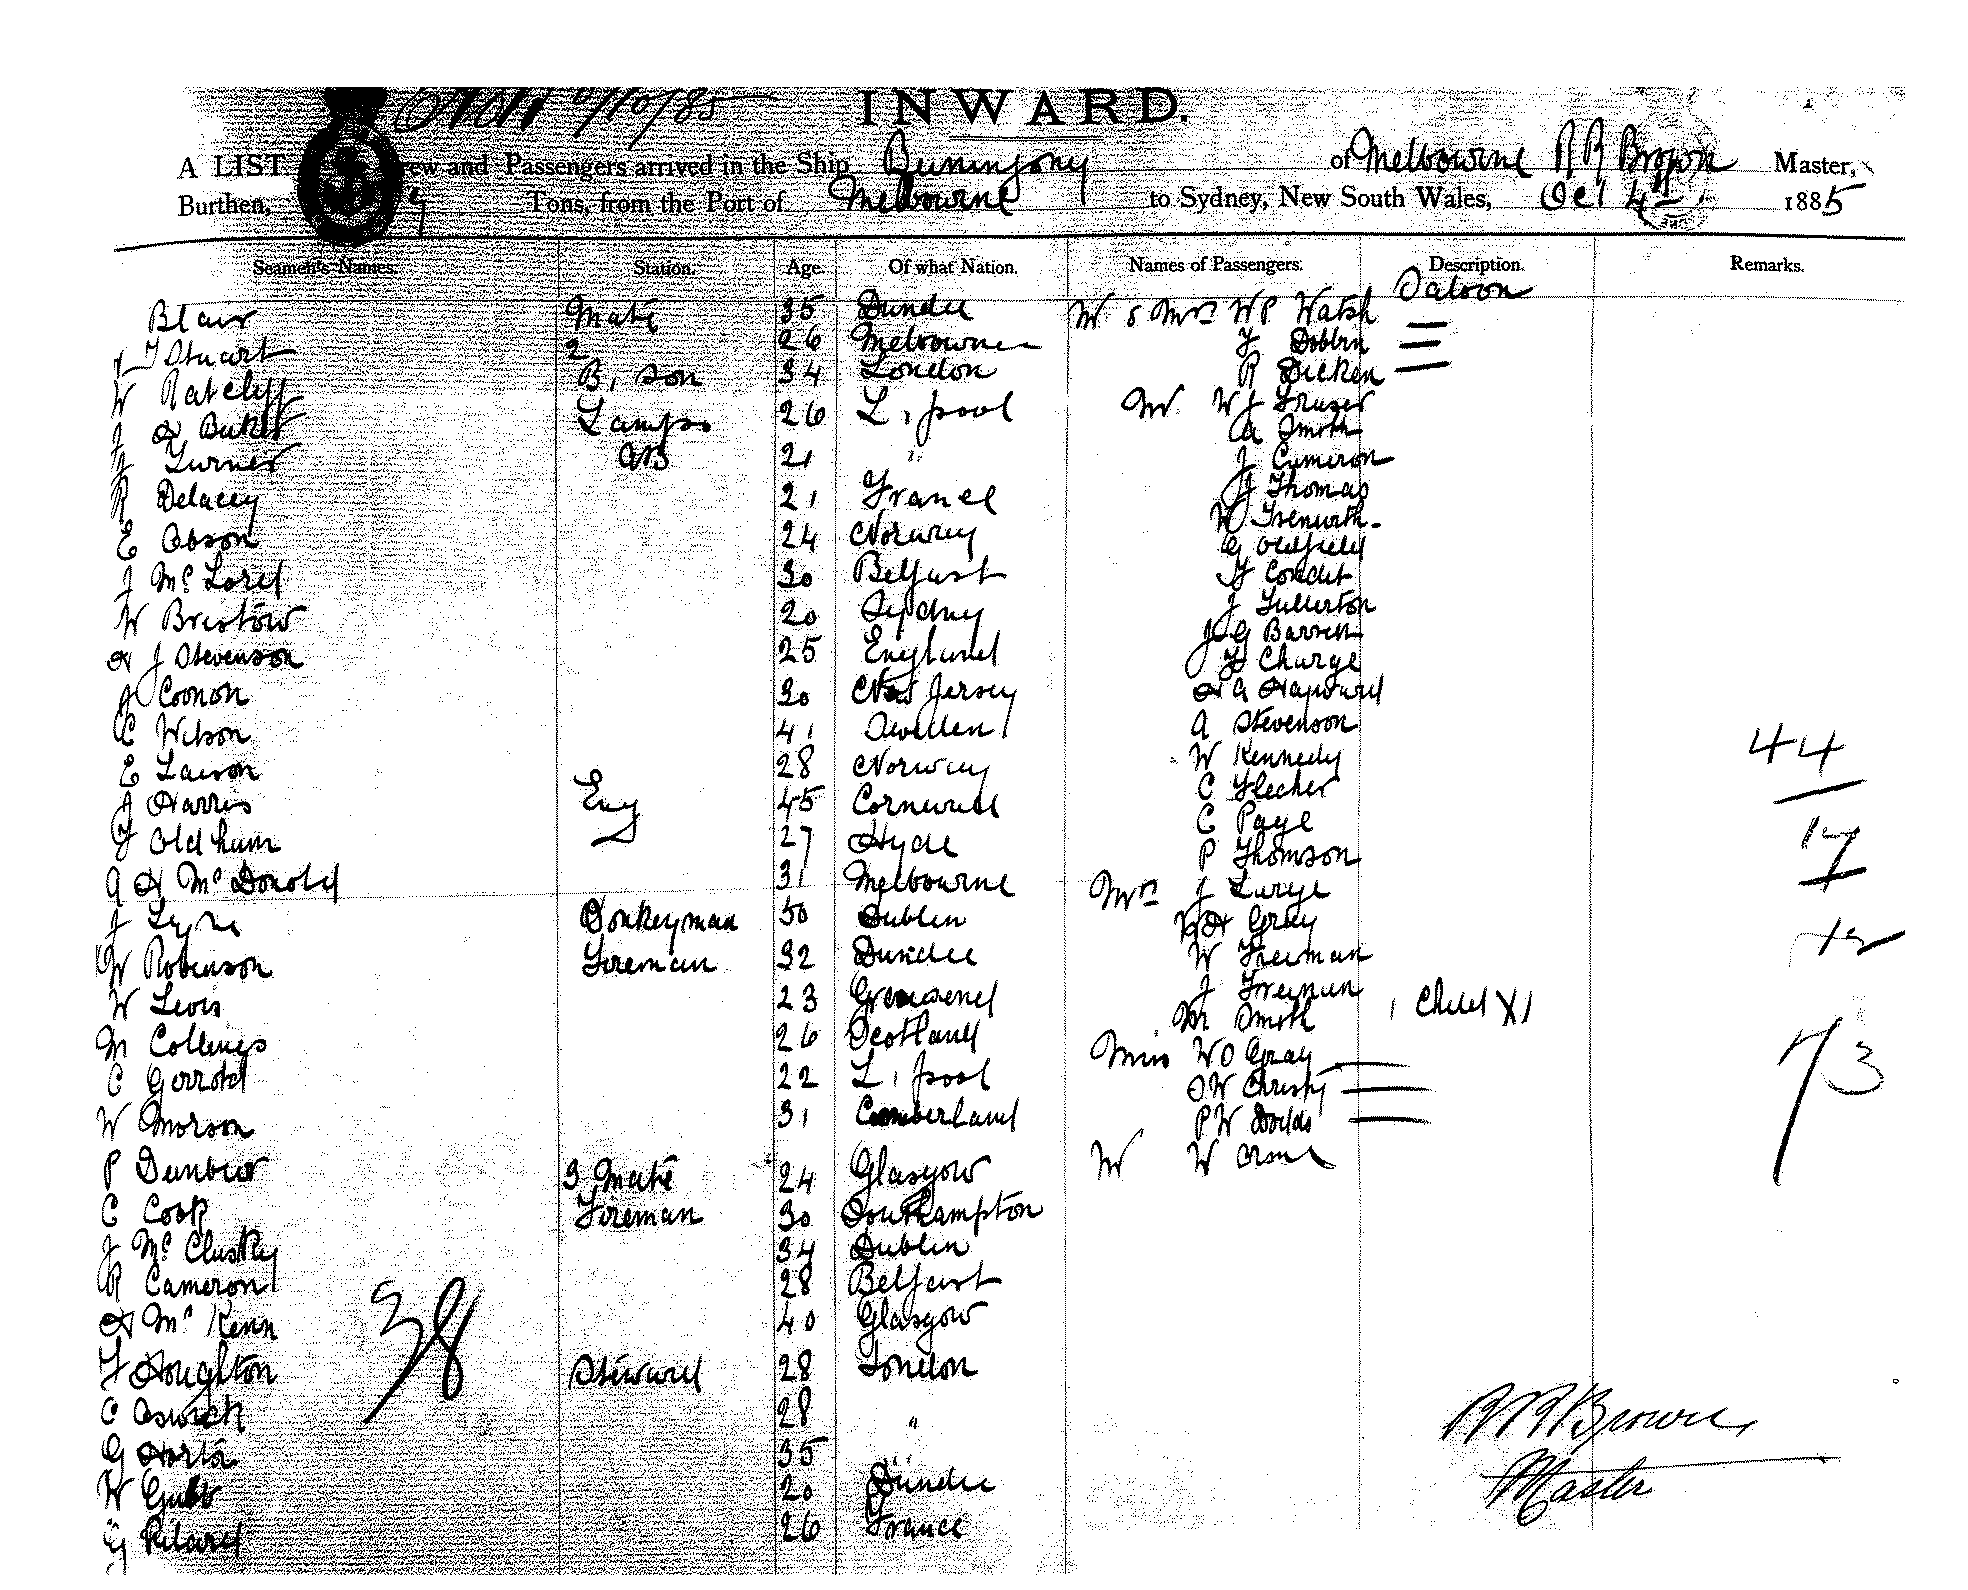 6/10/85
INWARD.
A LIST ew and Passengers arrived in the Ship Buninyong of Melbourne R R Brown Master,
Burthen, Tons, from the Port of Melbourne to Sydney, New South Wales, Oct 4th 1885
Seamen's Names. Station. Age Of what Nation. Names of Passengers. Description. Remarks.
Saloon
Blair Mate 35 Dundee M & Mrs W P Watsh
Stuart 2 26 Melbourne F Dobbin
W Ratcliff B, son 34 London R Dicken
J H Baker Lamps 26 L, pool Mr W J Fraser
A Smith
J Turner AB 21 " J Cameron
R Delacey 21 France J Thomas
E Obson 24 Norway W Trenwith
G Oldfield
J Mc Lord 30 Belfast F Condit
W Brestow 20 Sydney J Fullerton
J G Barrett
H J Stevenson 25 England F Charge
J Coonon 30 New Jersey H A Hayward
C Wilson 41 Sweden A Stevenson
E Lawson 28 Norway W Kennedy 44
J Harris Eng 45 Cornwall C Flecher
C Page
F Oldham 27 Hyde P Thomson 17
A H Mc Donold 31 Melbourne Mrs J Large
J Lyne Donkeyman 50 Dublin W H Gray 12
W Robinson Fireman 32 Dundee W Freeman
W Lewis 23 Gravesend J Freeman
M Smith 1 Child X1
M Collines 26 Scotland Miss W O Gray 73
C Gerrold 22 L, pool O W Christy
W Morson 31 Cumberland P W Dodds
P Dunbar 3 Mate 24 Glasgow M W Orme
C Cook Fireman 30 Southampton
J Mc Clusky 34 Dublin
R Cameron 28 Belfast
H Mc Kenn 40 Glasgow
38
F Houghton Steward 28 London
C Oswick 28 "
R R Brown
G Horta 35 "
Master
W Gubb 20 Dundee
G Rilard 26 France